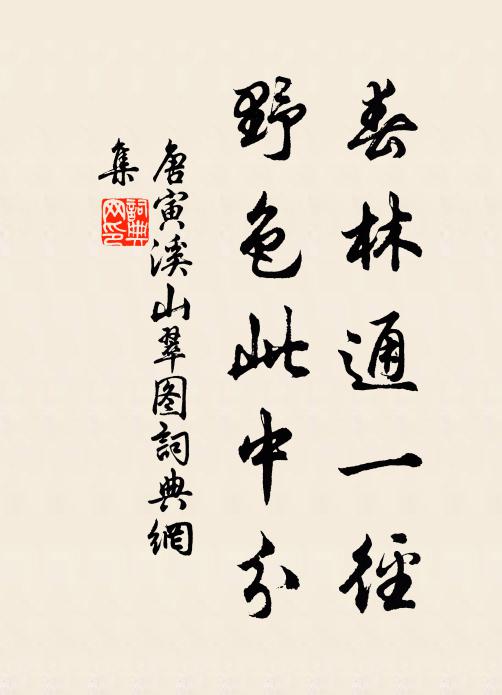 春林通一徑
野色此中分
唐寅溪山翠图詞典網
集
詞典网印